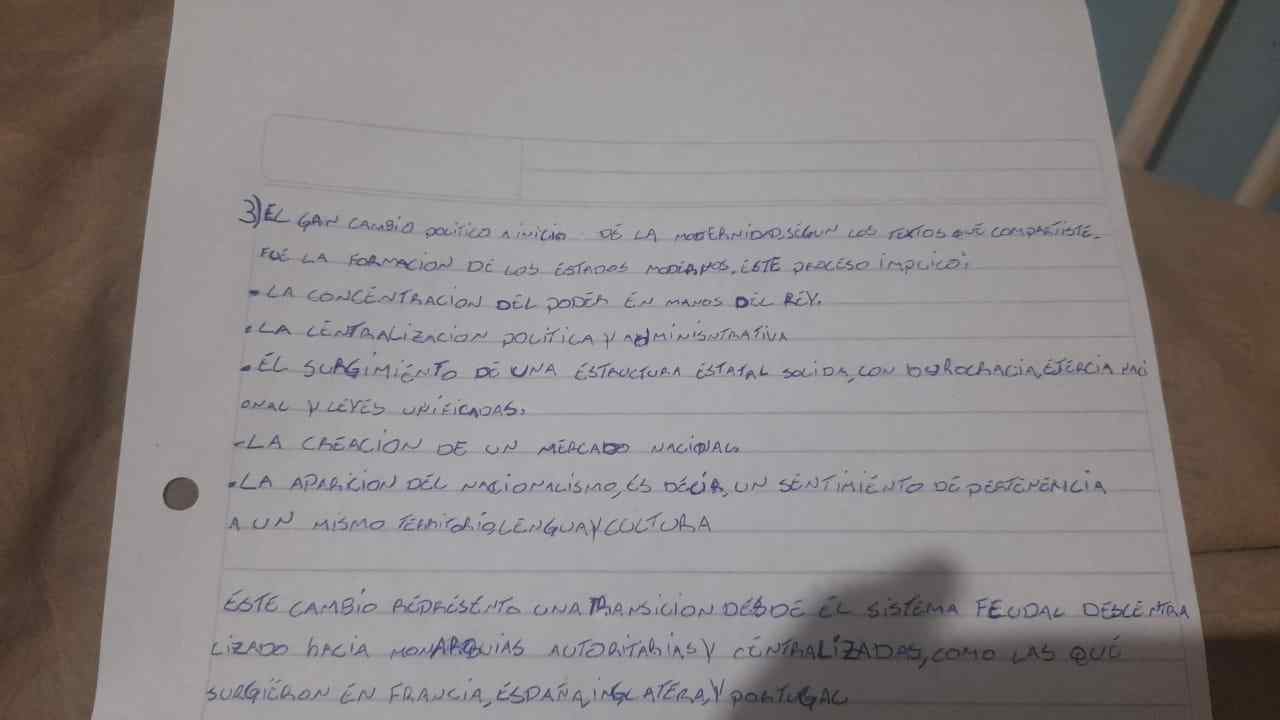 3) EL GAN CAMBIO POLITICO A INICIO DE LA MODERNIDAD, SEGUN LOS TEXTOS QUE COMPARTISTE.
FUE LA FORMACION DE LOS ESTADOS MODERNOS. ESTE PROCESO IMPLICO:
• LA CONCENTRACION DEL PODER EN MANOS DEL REY.
• LA CENTRALIZACION POLITICA Y ADMINISNTRATIVA
• EL SURGIMIENTO DE UNA ESTRUCTURA ESTATAL SOLIDA, CON BUROCRACIA, EJERCIA NACI
ONAL Y LEYES UNIFICADAS.
- LA CREACION DE UN MERCADO NACIONAL.
• LA APARICION DEL NACIONALISMO, ES DECIR, UN SENTIMIENTO DE PERTENENCIA
A UN MISMO TERRITORIO, LENGUA Y CULTURA
ESTE CAMBIO REPRESENTO UNA TRANSICION DESDE EL SISTEMA FEUDAL DESCENTRA
LIZADO HACIA MONARQUIAS AUTORITARIAS Y CENTRALIZADAS, COMO LAS QUE
SURGIERON EN FRANCIA, ESPAÑA, INGLATERA, Y PORTUGAL